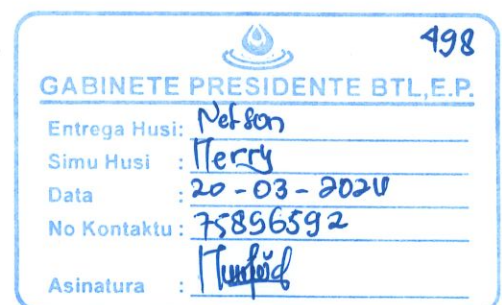 498
GABINETE PRESIDENTE BTL,E.P.
Entrega Husi: Nelson
Simu Husi : Merry
Data : 20-03-2024
No Kontaktu : 75856592
Asinatura :